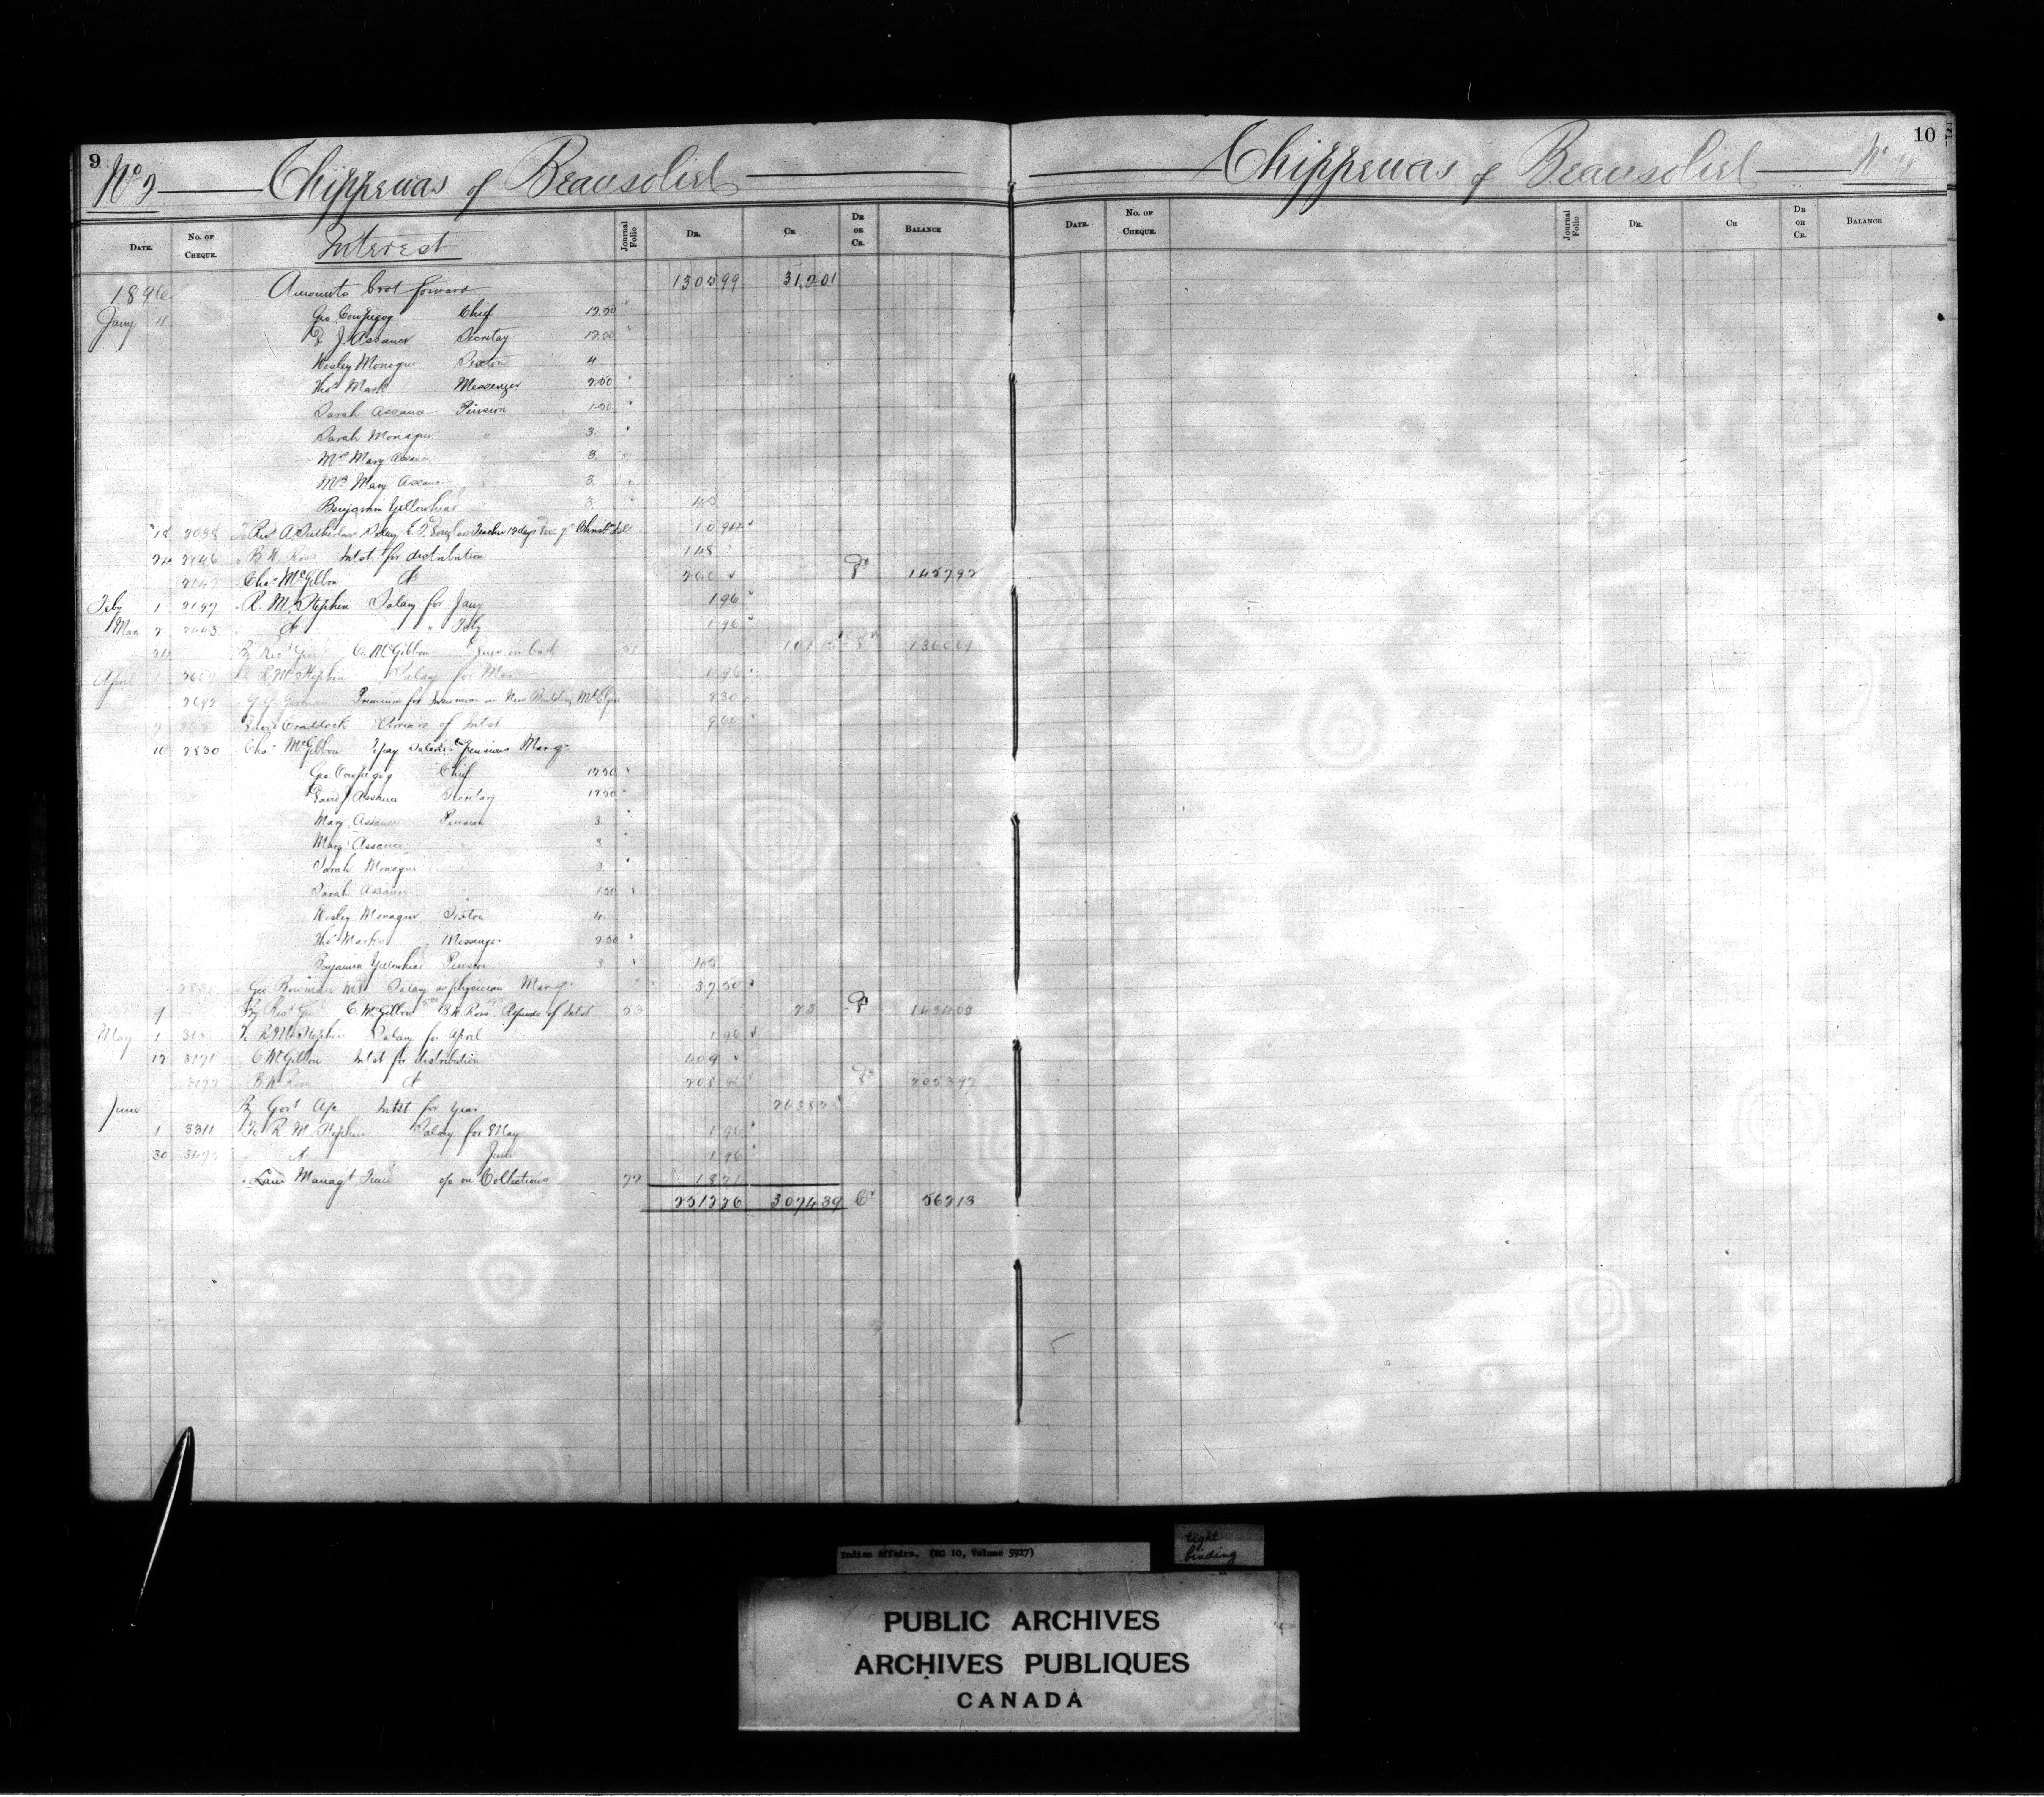 9
No 2 Chippewas of Beausoliel
DATE. No. OF CHEQUE. Interest Journal Folio DR. CR DR OR CR. BALANCE
1896 Amounts brot forward 1305 99 312 01
Jany 11 Geo. Chief 12.50
D. J. Assance Secretary 12.50
Wesley Monague Sexton 4
Thos Mark Messenger 2.50
Sarah Assance Pension 1.50
Sarah Monague " 3.
Mrs Mary Assance " 3.
Mrs Mary Assance " 3.
Benjamin Yellowhead " 3. 45
18 2038 To Revd A Sutherland Salary Teacher 12 days
24 2146 " B. W. Ross Intst for distribution 148
2147 " Chas McGibbon Do 260 Dr 1457 92
Feby 1 2197 " R. M. Stephen Salary for Jany 1 96
Mar 2 2443 " Do " " Feby 1 96
24 C. McGibbon 51 Dr 1360 69
April 1 R. M. Stephen Salary for Mar 1 96
2692 Premium for Insurance on New Building 2 30
Craddock Arrears of Intst 9 60
10 2830 Chas McGibbon To pay Salaries & Pensions Mar qr
Geo. Chief 12.50
David J. Assance Secretary 12.50
Mary Assance Pension 3
Mary Assance " 3
Sarah Monague " 3.
Sarah Assance " 1 50
Wesley Monague Sexton 4.
Thos Mark Messenger 2.50
Benjamin Yellowhead Pension 3 45
2831 " Geo. Bowman MD Salary as physician Mar qr 37 50
9 By C McGibbon B. W. Ross Refunds of Intst 53 28 Dr 1434 05
May 1 To R. M. Stephen Salary for April 1 96
12 3171 " C. McGibbon Intst for distribution 409
3172 " B. W. Ross Do 208 96 Dr 2053 97
June By Govt A/c Intst for year 2638 23
1 3311 To R. M. Stephen Salary for May 1 96
30 Do June 1 96
" Land Managt Fund c/o on Collections 77 18 71
2512 26 3074 39 Cr 562 13
10
Chippewas of Beausoliel No 2
DATE. No. OF CHEQUE. Journal Folio DR. CR DR OR CR. BALANCE
Indian Affairs. (RG 10, Volume 5927)
tight binding
PUBLIC ARCHIVES
ARCHIVES PUBLIQUES
CANADA